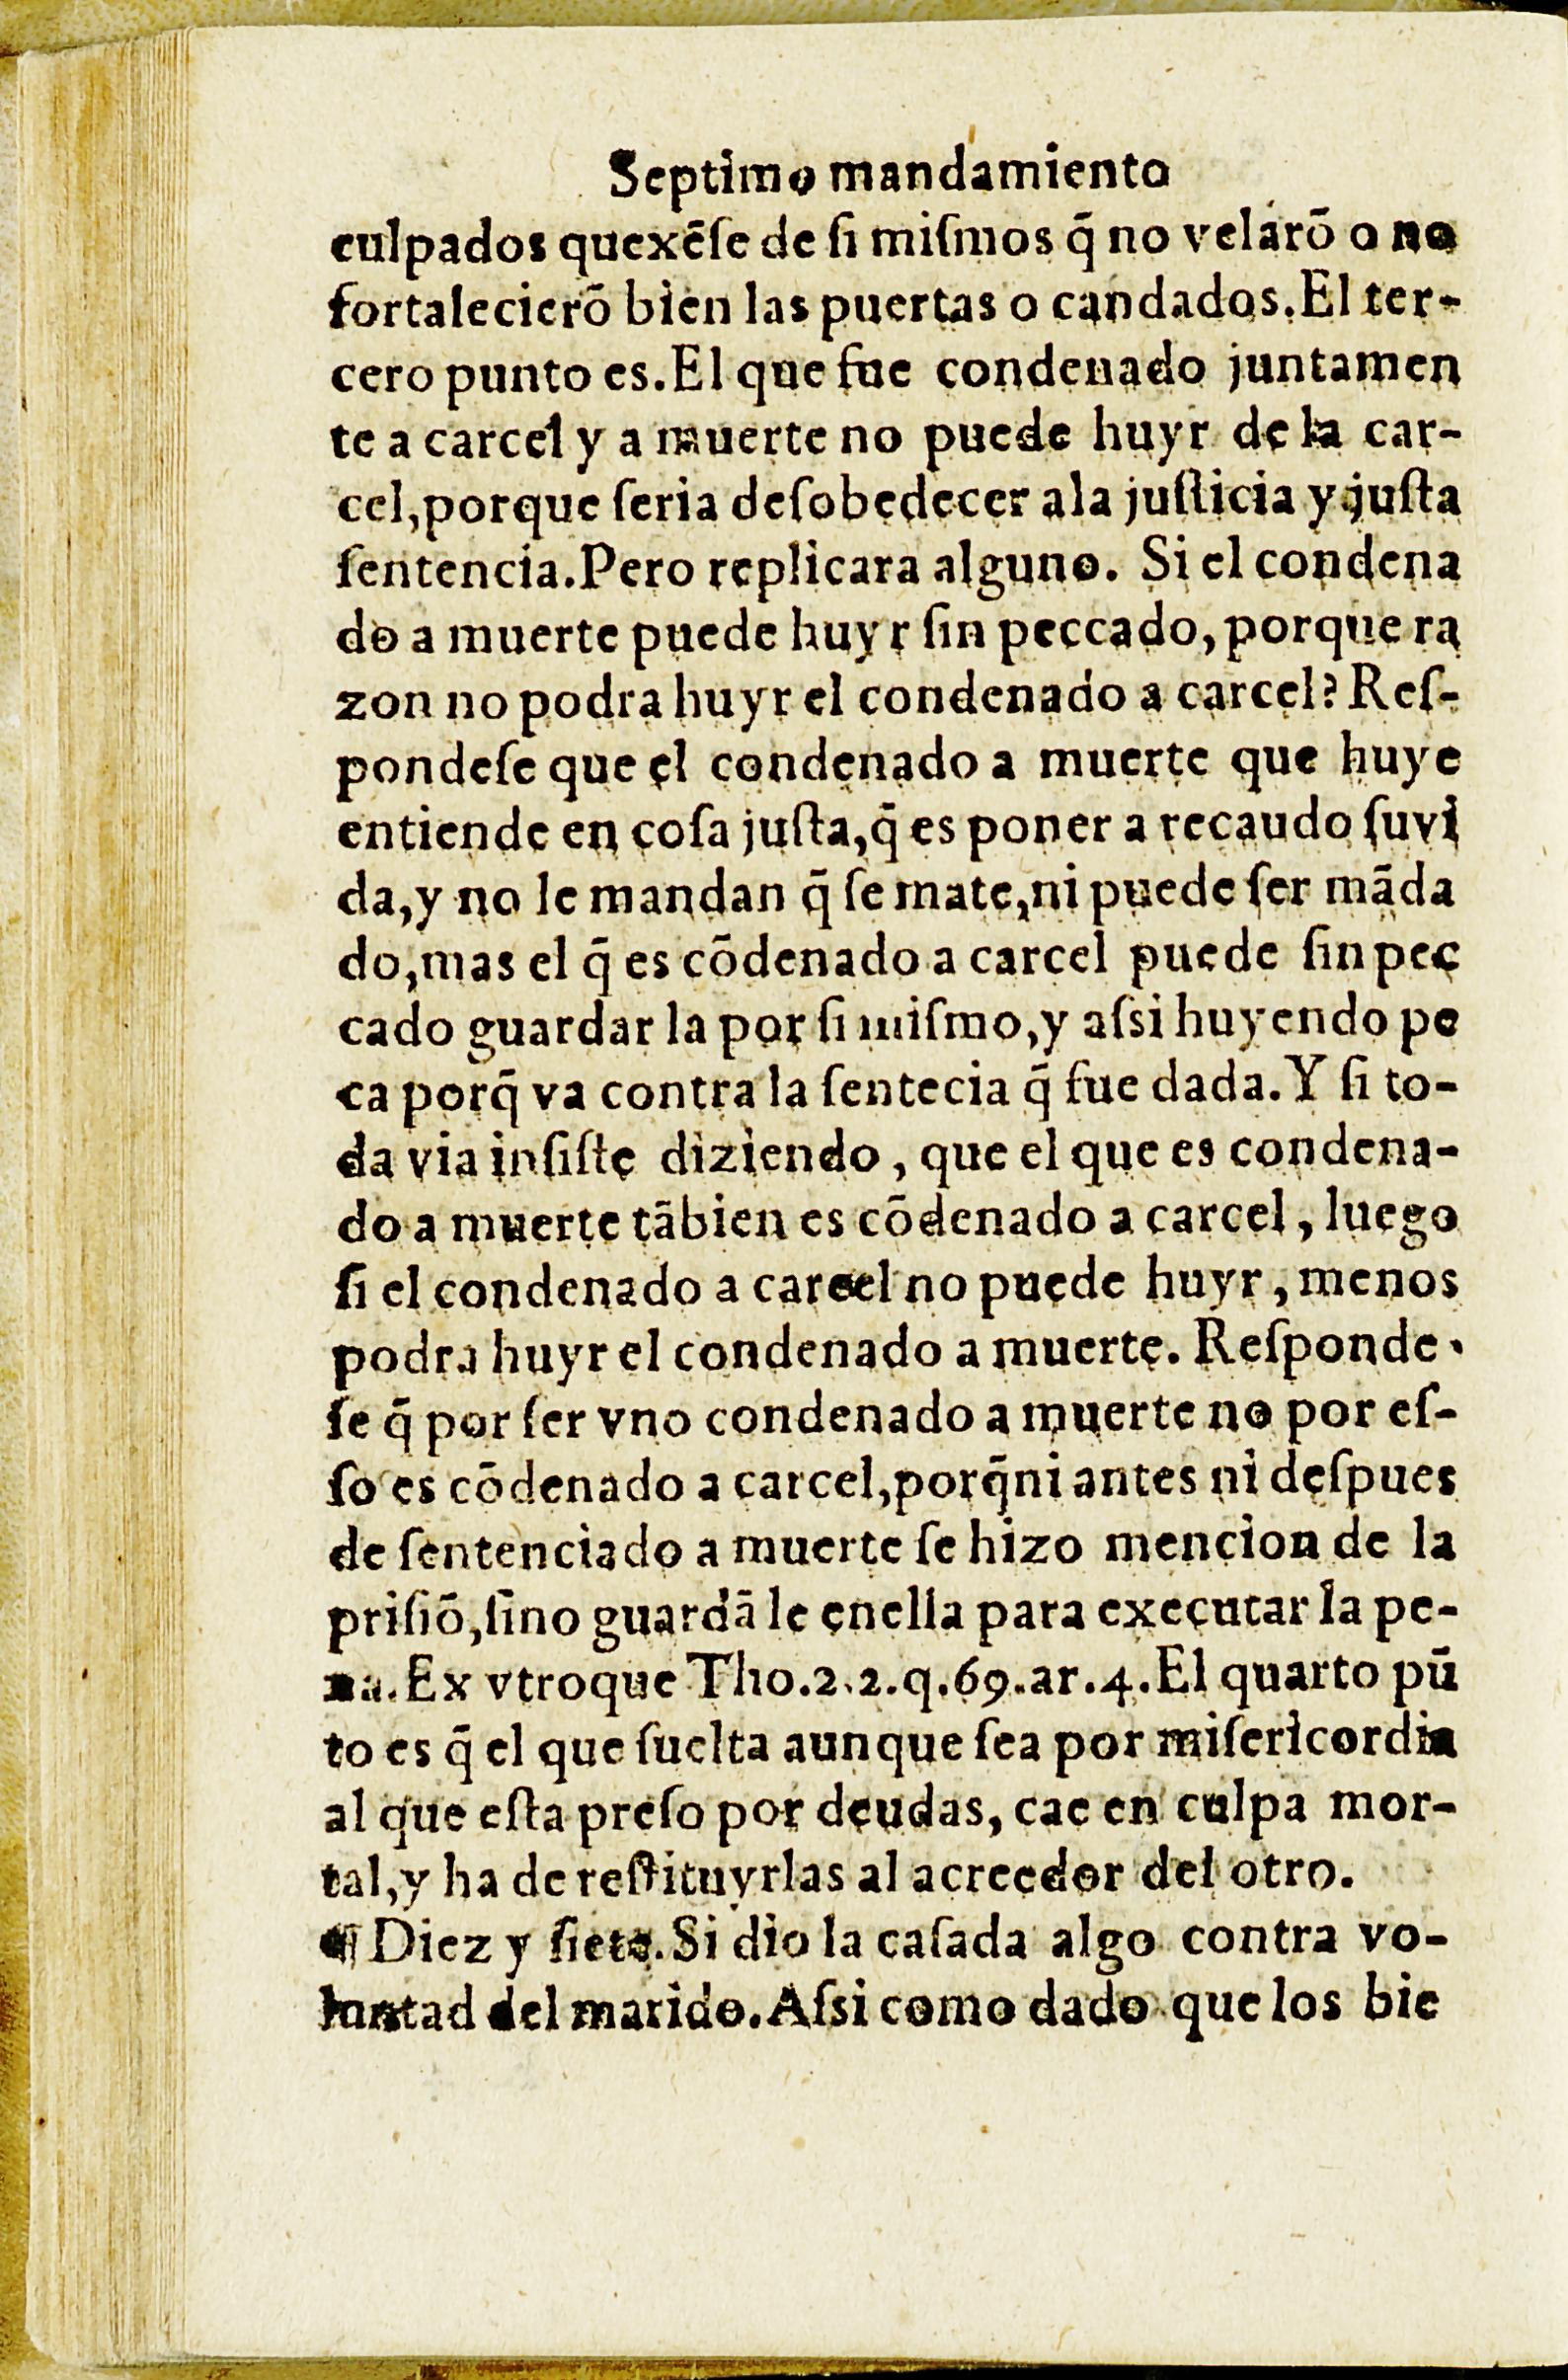 Septimo mandamiento
culpados quexēſe de ſi miſmos q̄ no velarō o no
fortalecierō bien las puertas o candados. El ter-
cero punto es. El que fue condenado juntamen
te a carcel y a muerte no puede huyr de la car-
cel, porque ſeria deſobedecer ala juſticia y juſta
ſentencia. Pero replicara alguno. Si el condena
do a muerte puede huyr ſin peccado, porque ra
zon no podra huyr el condenado a carcel? Reſ-
pondeſe que el condenado a muerte que huye
entiende en coſa juſta, q̄ es poner a recaudo ſu vi
da, y no le mandan q̄ ſe mate, ni puede ſer māda
do, mas el q̄ es cōdenado a carcel puede ſin pec
cado guardar la por ſi miſmo, y aſsi huyendo pe
ca porq̄ va contra la ſentecia q̄ fue dada. Y ſi to-
da via inſiſte diziendo, que el que es condena-
do a muerte tābien es cōdenado a carcel, luego
ſi el condenado a carcel no puede huyr, menos
podra huyr el condenado a muerte. Reſponde-
ſe q̄ por ſer vno condenado a muerte no por eſ-
ſo es cōdenado a carcel, porq̄ ni antes ni deſpues
de ſentenciado a muerte ſe hizo mencion de la
priſiō, ſino guardā le enella para executar la pe-
na. Ex vtroque Tho. 2. 2. q. 69. ar. 4. El quarto pū
to es q̄ el que ſuelta aunque ſea por miſericordia
al que eſta preſo por deudas, cae en culpa mor-
tal, y ha de reſtituyrlas al acreedor del otro.
¶ Diez y ſiete. Si dio la caſada algo contra vo-
luntad del marido. Aſsi como dado que los bie